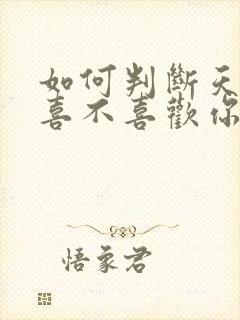 如何判斷天
喜不喜歡你
悟象君